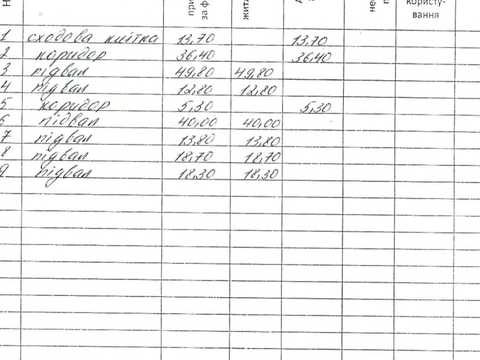 користу-
вання
1 сходова клітка 13,70 13,70
2 коридор 36,40 36,40
3 підвал 49,80 49,80
4 підвал 12,80 12,80
5 коридор 5,30 5,30
6 підвал 40,00 40,00
7 підвал 13,80 13,80
8 підвал 18,70 18,70
9 підвал 18,30 18,30